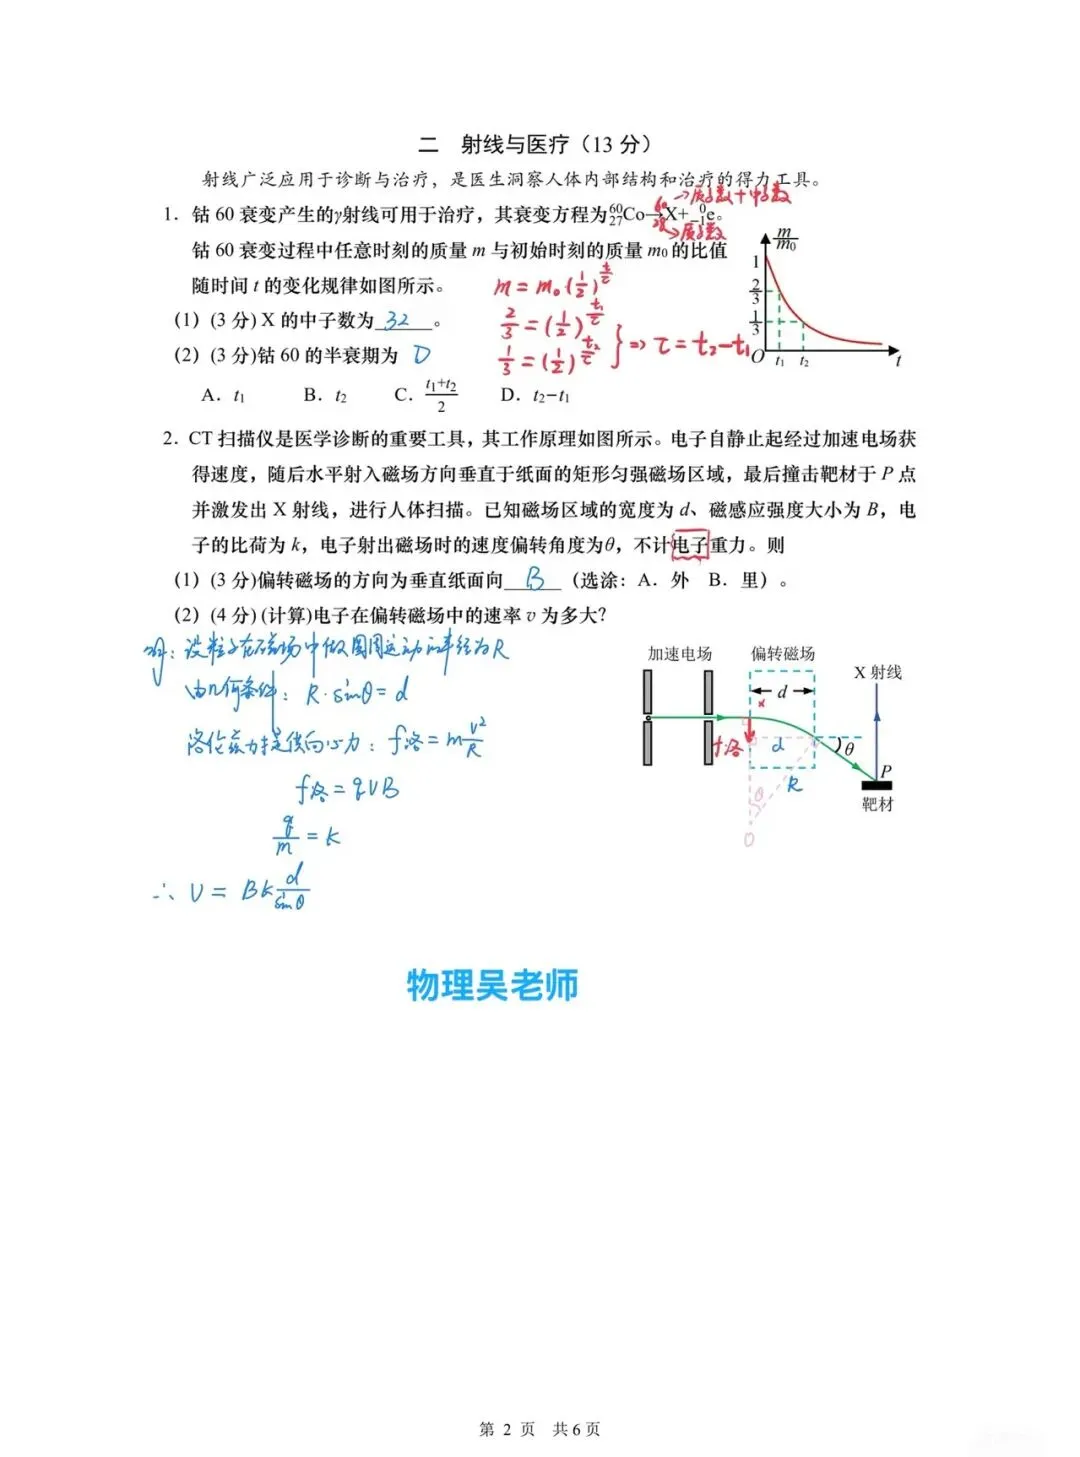 二 射线与医疗（13 分）
射线广泛应用于诊断与治疗，是医生洞察人体内部结构和治疗的得力工具。
60→质子数+中子数
1．钴 60 衰变产生的γ射线可用于治疗，其衰变方程为⁶⁰₂₇Co→X+⁰₋₁e。
28→质子数
钴 60 衰变过程中任意时刻的质量 m 与初始时刻的质量 m₀ 的比值
随时间 t 的变化规律如图所示。
m = m₀(1/2)^(t/τ)
(1)（3 分）X 的中子数为 32 。
2/3 = (1/2)^(t₁/τ)
(2)（3 分)钴 60 的半衰期为 D
1/3 = (1/2)^(t₂/τ) } => τ = t₂-t₁
A．t₁ B．t₂ C．(t₁+t₂)/2 D．t₂−t₁
m/m₀
1
2/3
1/3
O t₁ t₂ t
2．CT 扫描仪是医学诊断的重要工具，其工作原理如图所示。电子自静止起经过加速电场获
得速度，随后水平射入磁场方向垂直于纸面的矩形匀强磁场区域，最后撞击靶材于 P 点
并激发出 X 射线，进行人体扫描。已知磁场区域的宽度为 d、磁感应强度大小为 B，电
子的比荷为 k，电子射出磁场时的速度偏转角度为θ，不计电子重力。则
(1)（3 分)偏转磁场的方向为垂直纸面向 B （选涂：A．外 B．里）。
(2)（4 分) (计算)电子在偏转磁场中的速率 v 为多大?
解：设粒子在磁场中做圆周运动的半径为R
由几何条件：R·sinθ = d
洛伦兹力提供向心力：f洛 = m v²/R
f洛 = qvB
q/m = k
∴ v = Bk d/sinθ
加速电场 偏转磁场
X 射线
d
×
f洛 d θ
P
R
靶材
θ
O
物理吴老师
第 2 页 共 6 页